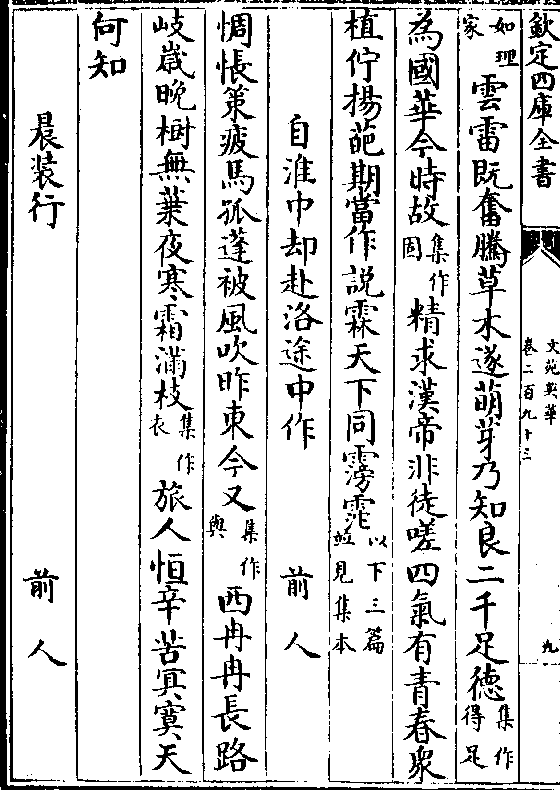 欽定四庫全書
文苑英華
卷二百九十三
九
如理
家
雲雷既奮騰草木遂萌芽乃知良二千足德集作
得足
為國華今時故集作
固精求漢帝非徒嗟四氣有青春衆
植佇揚葩期當作説霖天下同霶霏以下三篇
並見集本
自淮中却赴洛途中作 前人
惆悵策疲馬孤蓬被風吹昨東今又集作
與西冉冉長路
岐歲晚樹無葉夜寒霜滿枝集作
衣旅人恒辛苦冥寞天
何知
晨装行 前人